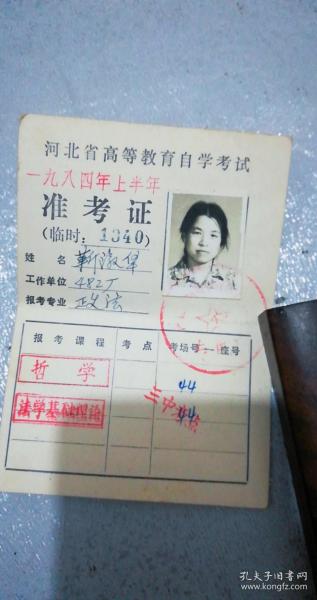 河北省高等教育自学考试
一九八四年上半年
准考证
(临时：1340)
姓名 靳淑
工作单位 482厂
报考专业 政法
报考课程 考点 考场号—座号
哲学 44
法学基础理论 三中 44
孔夫子旧书网
www.kongfz.com